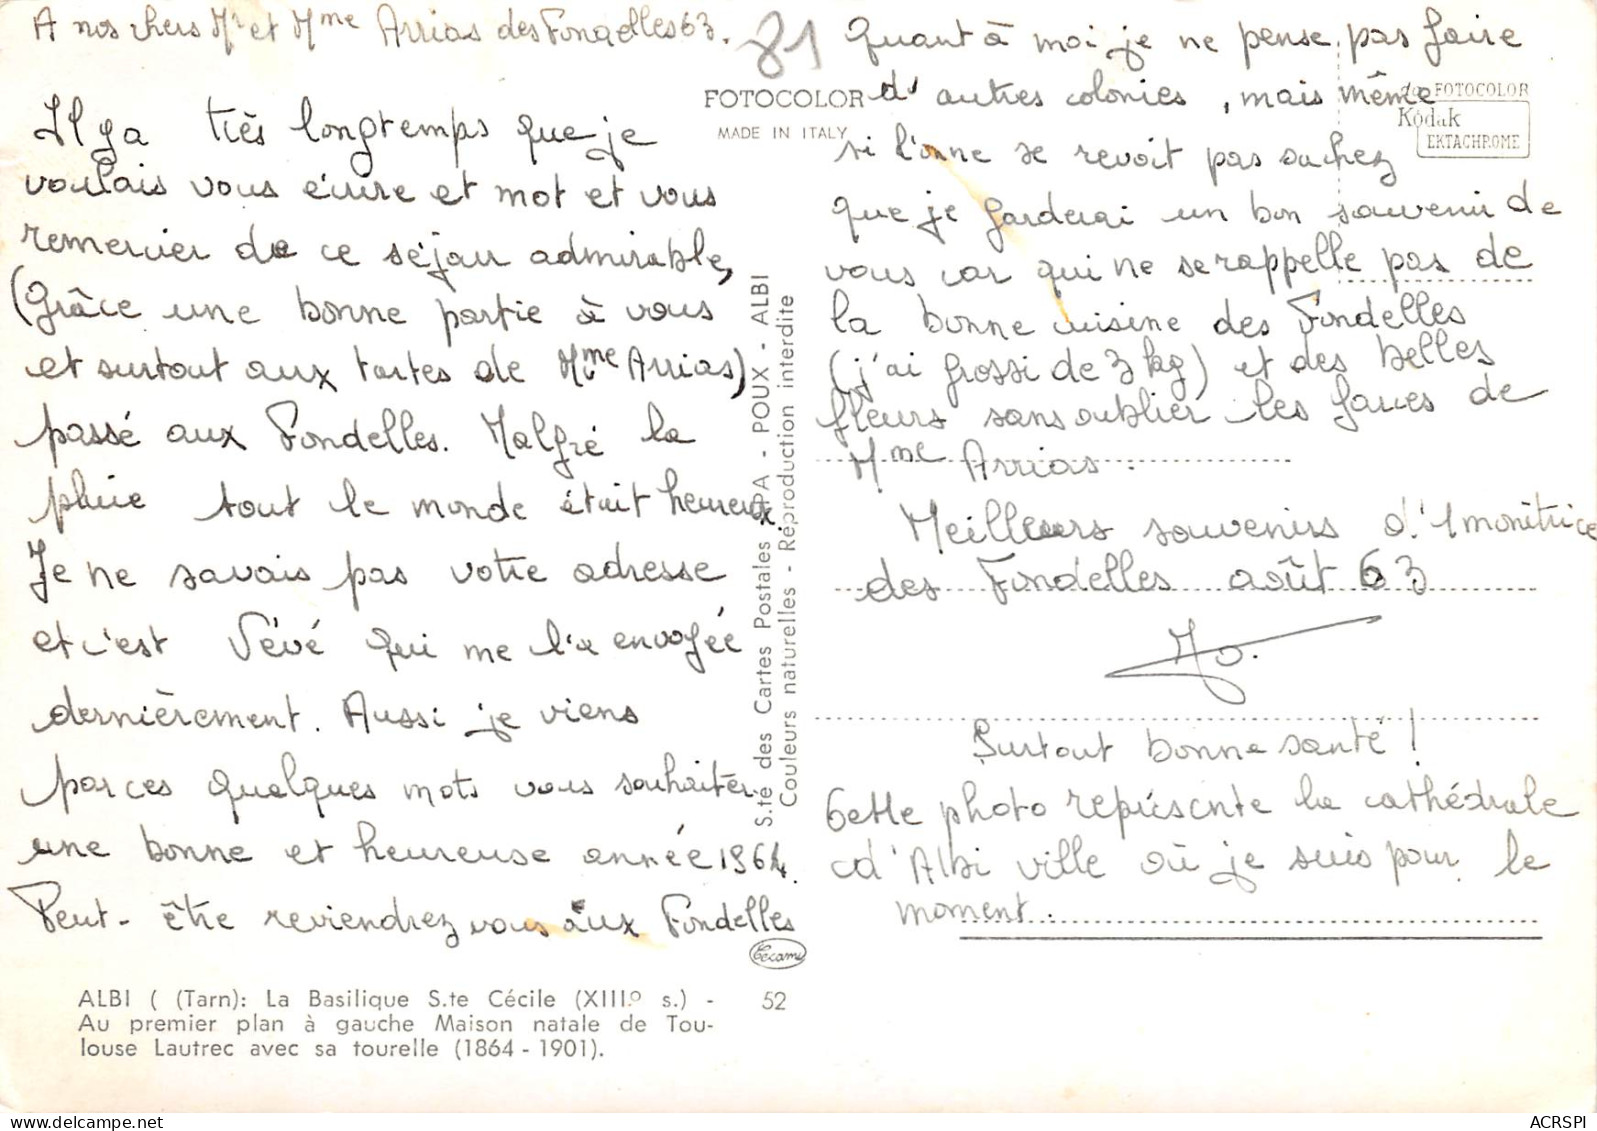 A nos chers Mr et Mme Arrias des Fondelles 63.
Il y a très longtemps que je
voulais vous écrire et mot et vous
remercier de ce séjour admirable,
(Grâce une bonne partie à vous
et surtout aux tartes de Mme Arrias)
passé aux Fondelles. Malgré la
pluie tout le monde était heureux.
Je ne savais pas votre adresse
et c'est Vévé qui me l'a envoyée
dernièrement. Aussi je viens
par ces quelques mots vous souhaiter
une bonne et heureuse année 1964.
Peut-être reviendrez vous aux Fondelles
ALBI ( (Tarn): La Basilique S.te Cécile (XIII.º s.) -
Au premier plan à gauche Maison natale de Tou-
louse Lautrec avec sa tourelle (1864 - 1901).
52
81
FOTOCOLOR
MADE IN ITALY
S.té des Cartes Postales APA - POUX - ALBI
Couleurs naturelles - Réproduction interdite
Cecami
da FOTOCOLOR
Kodak
EKTACHROME
Quant à moi je ne pense pas faire
d'autres colonies, mais même
si l'on ne se revoit pas sachez
que je garderai un bon souvenir de
vous car qui ne se rappelle pas de
la bonne cuisine des Fondelles
(j'ai grossi de 3 kg) et des belles
fleurs sans oublier les farces de
Mme Arrias.
Meilleurs souvenirs d'1 monitrice
des Fondelles août 63
Jo.
Surtout bonne santé !
Cette photo représente la cathédrale
d'Albi ville où je suis pour le
moment.
ACRSPI